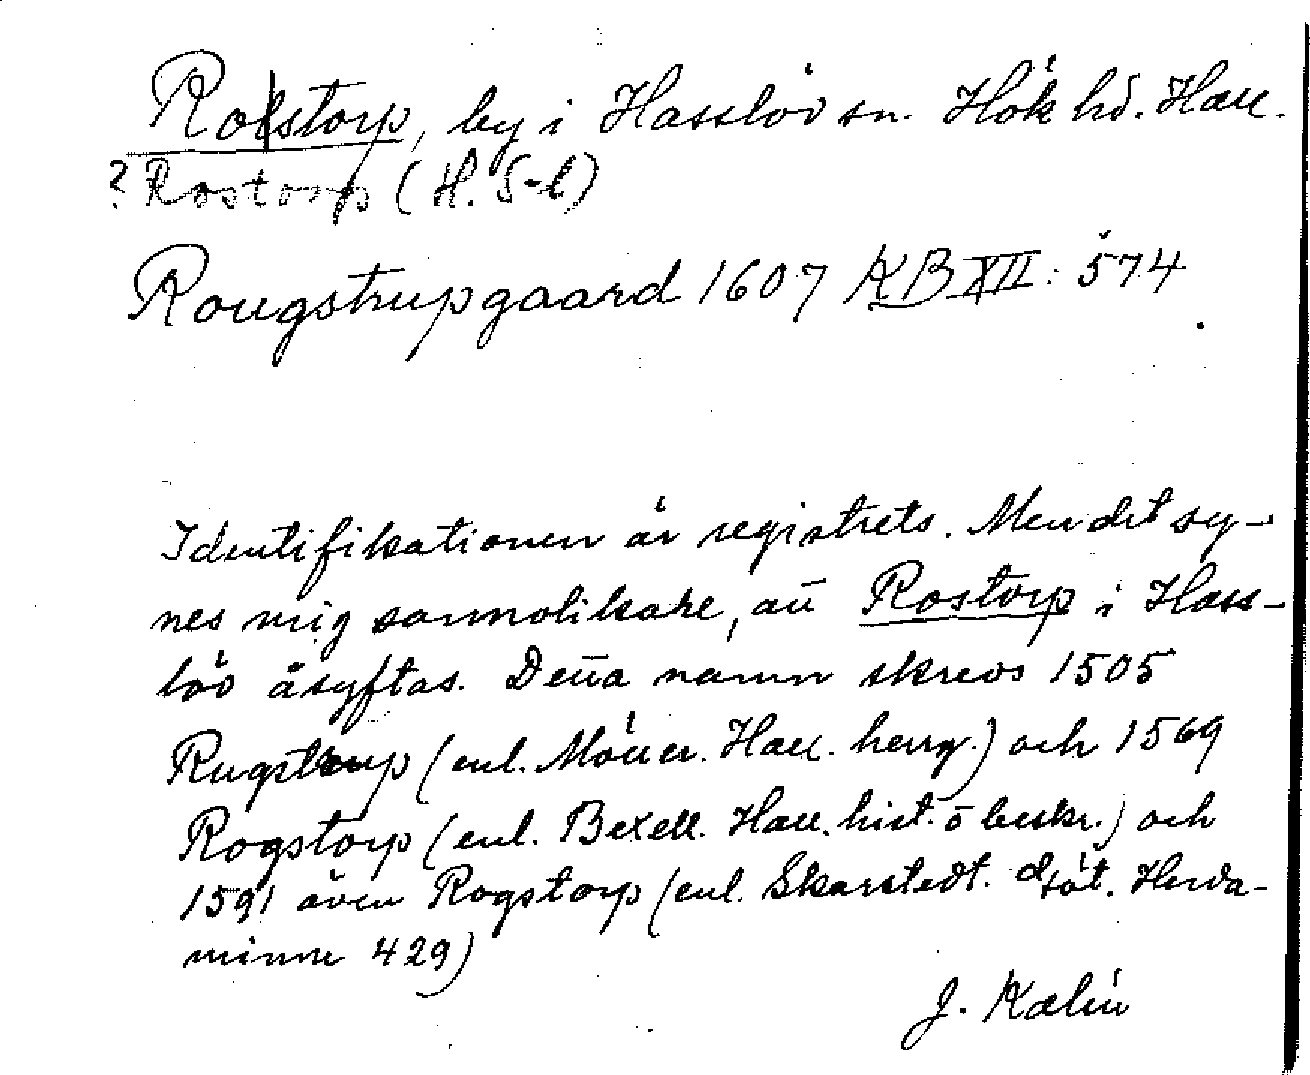 Rolstorp, by i Hasslöv sn. Hök hd. Hall.
? Rostorp (H. S-l)
Rougstrupgaard 1607 KB XII: 574
Identifikationen är registrets. Men det sy-
nes mig sannolikare, att Rostorp i Hass-
löv åsyftas. Detta namn skrevs 1505
Rugstrup (enl. Möller. Hall. herrg.) och 1569
Rogstorp (enl. Bexell. Hall. hist. o beskr.) och
1591 även Rogstorp (enl. Skarstedt. Göt. Herda-
minne 429)
J. Kalén